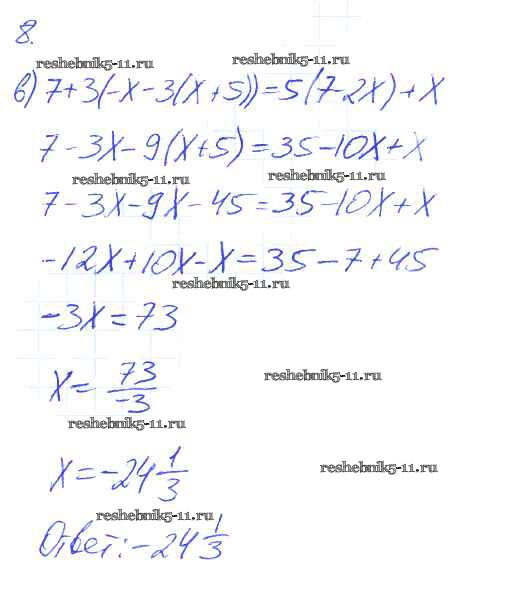 8.
reshebnik5-11.ru reshebnik5-11.ru
в) 7+3(-x-3(x+5))=5(7-2x)+x
7-3x-9(x+5)=35-10x+x
reshebnik5-11.ru reshebnik5-11.ru
7-3x-9x-45=35-10x+x
-12x+10x-x=35-7+45
reshebnik5-11.ru
-3x=73
x=73/-3
reshebnik5-11.ru
reshebnik5-11.ru
x=-24 1/3
reshebnik5-11.ru
reshebnik5-11.ru
Ответ: -24 1/3